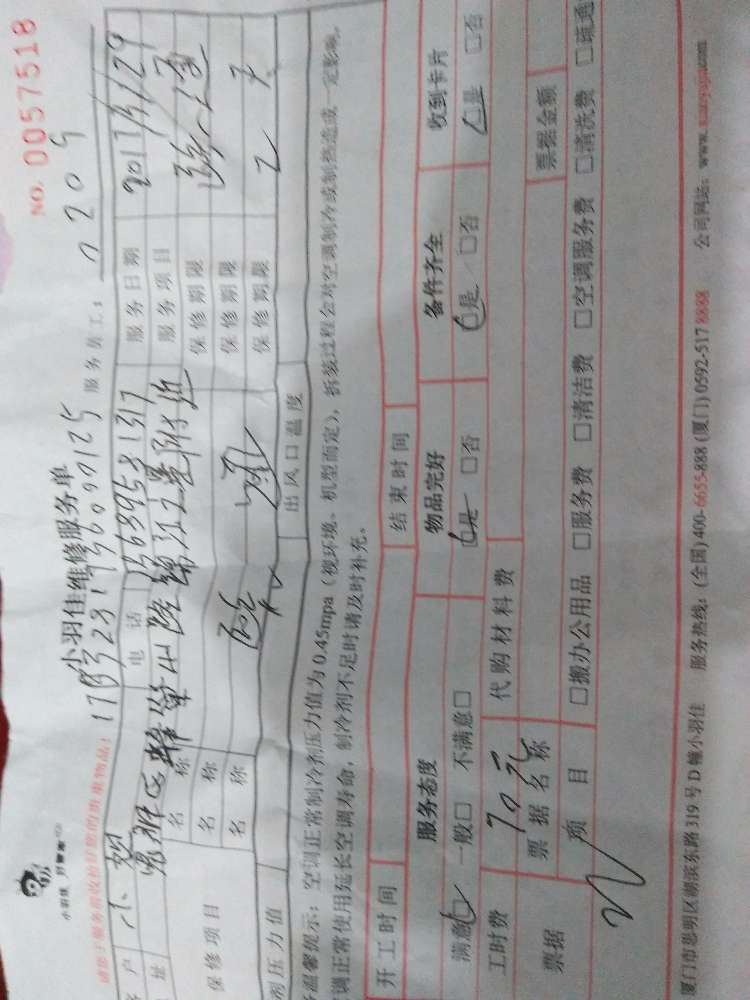 小羽佳 好管家
小羽佳维修服务单
NO. 0057518
请您于服务前收拾好您的贵重物品!
服务员工: 0209
户 小 电话 13689581317 服务日期 2017/9/29
址 服务项目
保修项目 名称 保修期限
名称 保修期限
名称 保修期限 乙 天
剂压力值 出风口温度
温馨提示:空调正常制冷剂压力值为0.45mpa(视环境、机型而定),拆装过程会对空调制冷或制热造成一定影响。
调正常使用延长空调寿命,制冷剂不足时请及时补充。
开工时间 结束时间
服务态度 物品完好 备件齐全 收到卡片
满意□ 一般□ 不满意□ □是 □否 □是 □否 □是 □否
工时费 70元 代购材料费
票据 票据名称 票据金额
项目 □搬办公用品 □服务费 □清洁费 □空调服务费 □清洗费 □疏通
厦门市思明区湖滨东路319号D幢小羽佳 服务热线:(全国)400-6655-888 (厦门)0592-517 8888 公司网站:www.xiaoyujia.com